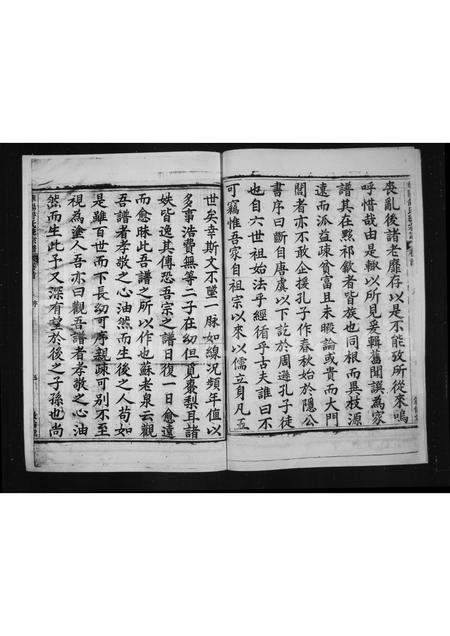 喪亂後諸老靡存以是不能攷所從來嗚
呼惜哉由是輙以所見妥輯舊聞譔為家
譜其在黟祁歙者皆族也同根而異枝源
遠而派益疎貧富且未暇論或貴而大門
閭者亦不敢企援孔子作春秋始於隱公
書序曰斷自唐虞以下訖於周遜孔子徒
也自六世祖始法乎經循乎古夫誰曰不
可竊惟吾家自祖宗以來以儒立身凡五
世矣幸斯文不墜一脉如線况頻年值以
多事浩費無等二子在幼但覓棗梨耳諸
姪皆逸其傳恐吾宗之譜日復一日愈遠
而愈昧此吾譜之所以作也蘇老泉云觀
吾譜者孝敬之心油然而生後之人苟如
是雖百世而下長幼可序親疎可别不至
視為塗人吾亦曰觀吾譜者孝敬之心油
然而生此予又深有望於後之子孫也尚